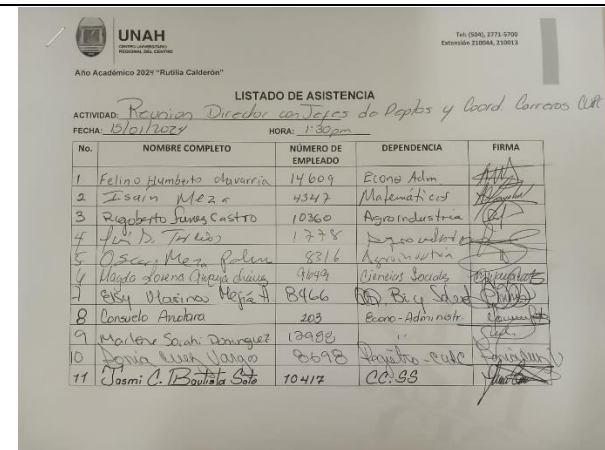 UNAH
CENTRO UNIVERSITARIO
REGIONAL DEL CENTRO
Tel: (504), 2771-5700
Extensión 210044, 210013
Año Académico 2024 "Rutilia Calderón"
LISTADO DE ASISTENCIA
ACTIVIDAD: Reunion Director con Jefes de Deptos y Coord. Carreras CURC
FECHA: 15/01/2024 HORA: 1:30 pm
No. NOMBRE COMPLETO NÚMERO DE EMPLEADO DEPENDENCIA FIRMA
1 Felino Humberto chavarria 14609 Econo Adm
2 Isain Meza 4347 Matemáticas
3 Rigoberto Funes Castro 10360 Agroindustria
4 1778
5 Oscar Meza 8316 Agroindustria
6 Magda Lorena 9649 Ciencias Sociales
7 Elsy Marina Mejía A. 8466
8 Consuelo 203 Econo-Administr.
9 Marlene Sarahi Dominguez 12988 "
10 Sonia Vargas 8698 Registro-CURC
11 Jasmi C. Bautista Soto 10417 CC.SS